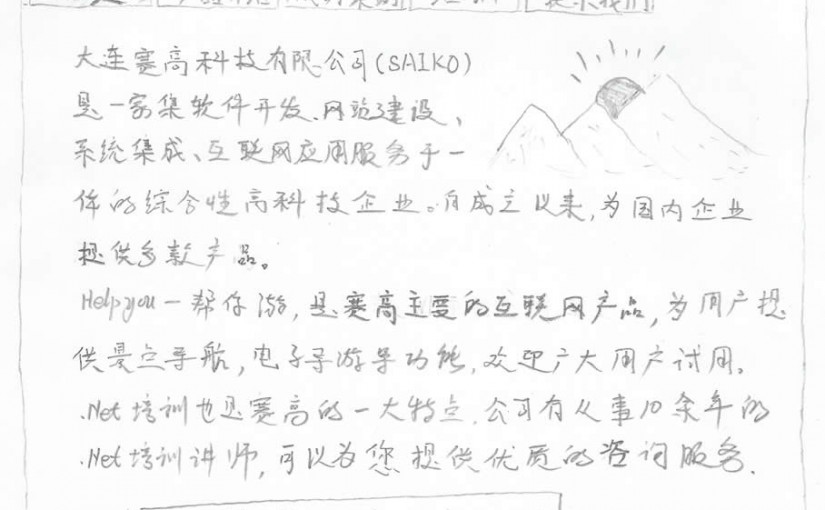 大连赛高科技有限公司(SAIKO)
是一家集软件开发、网站建设、
系统集成、互联网应用服务于一
体的综合性高科技企业。自成立以来,为国内企业
提供多款产品。
Helpyou一帮你游,是赛高主要的互联网产品,为用户提
供景点导航,电子导游等功能,欢迎广大用户试用。
.Net培训也是赛高的一大特点,公司有从事10余年的
.Net培训讲师,可以为您提供优质的咨询服务.